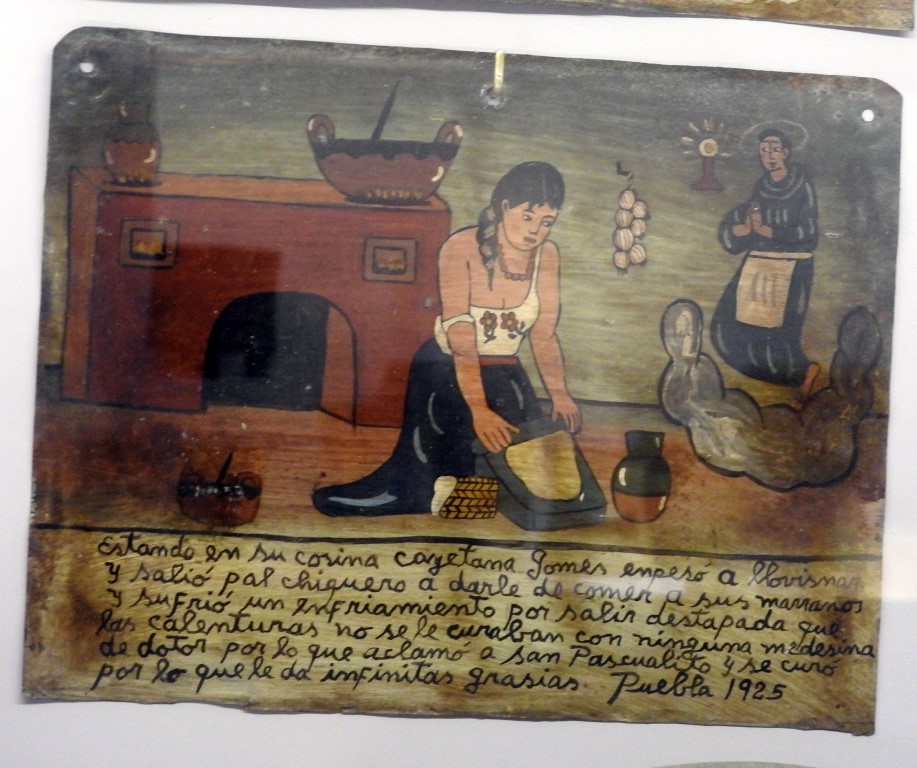 Estando en su cosina cayetana Gomes enpesó a llovisnar
y salió pal chiquero a darle de comer a sus marranos
y sufrió un enfriamiento por salir destapada que
las calenturas no se le curaban con ninguna medesina
de dotor por lo que aclamó a san Pascualito y se curó
por lo que le da infinitas grasias. Puebla 1925